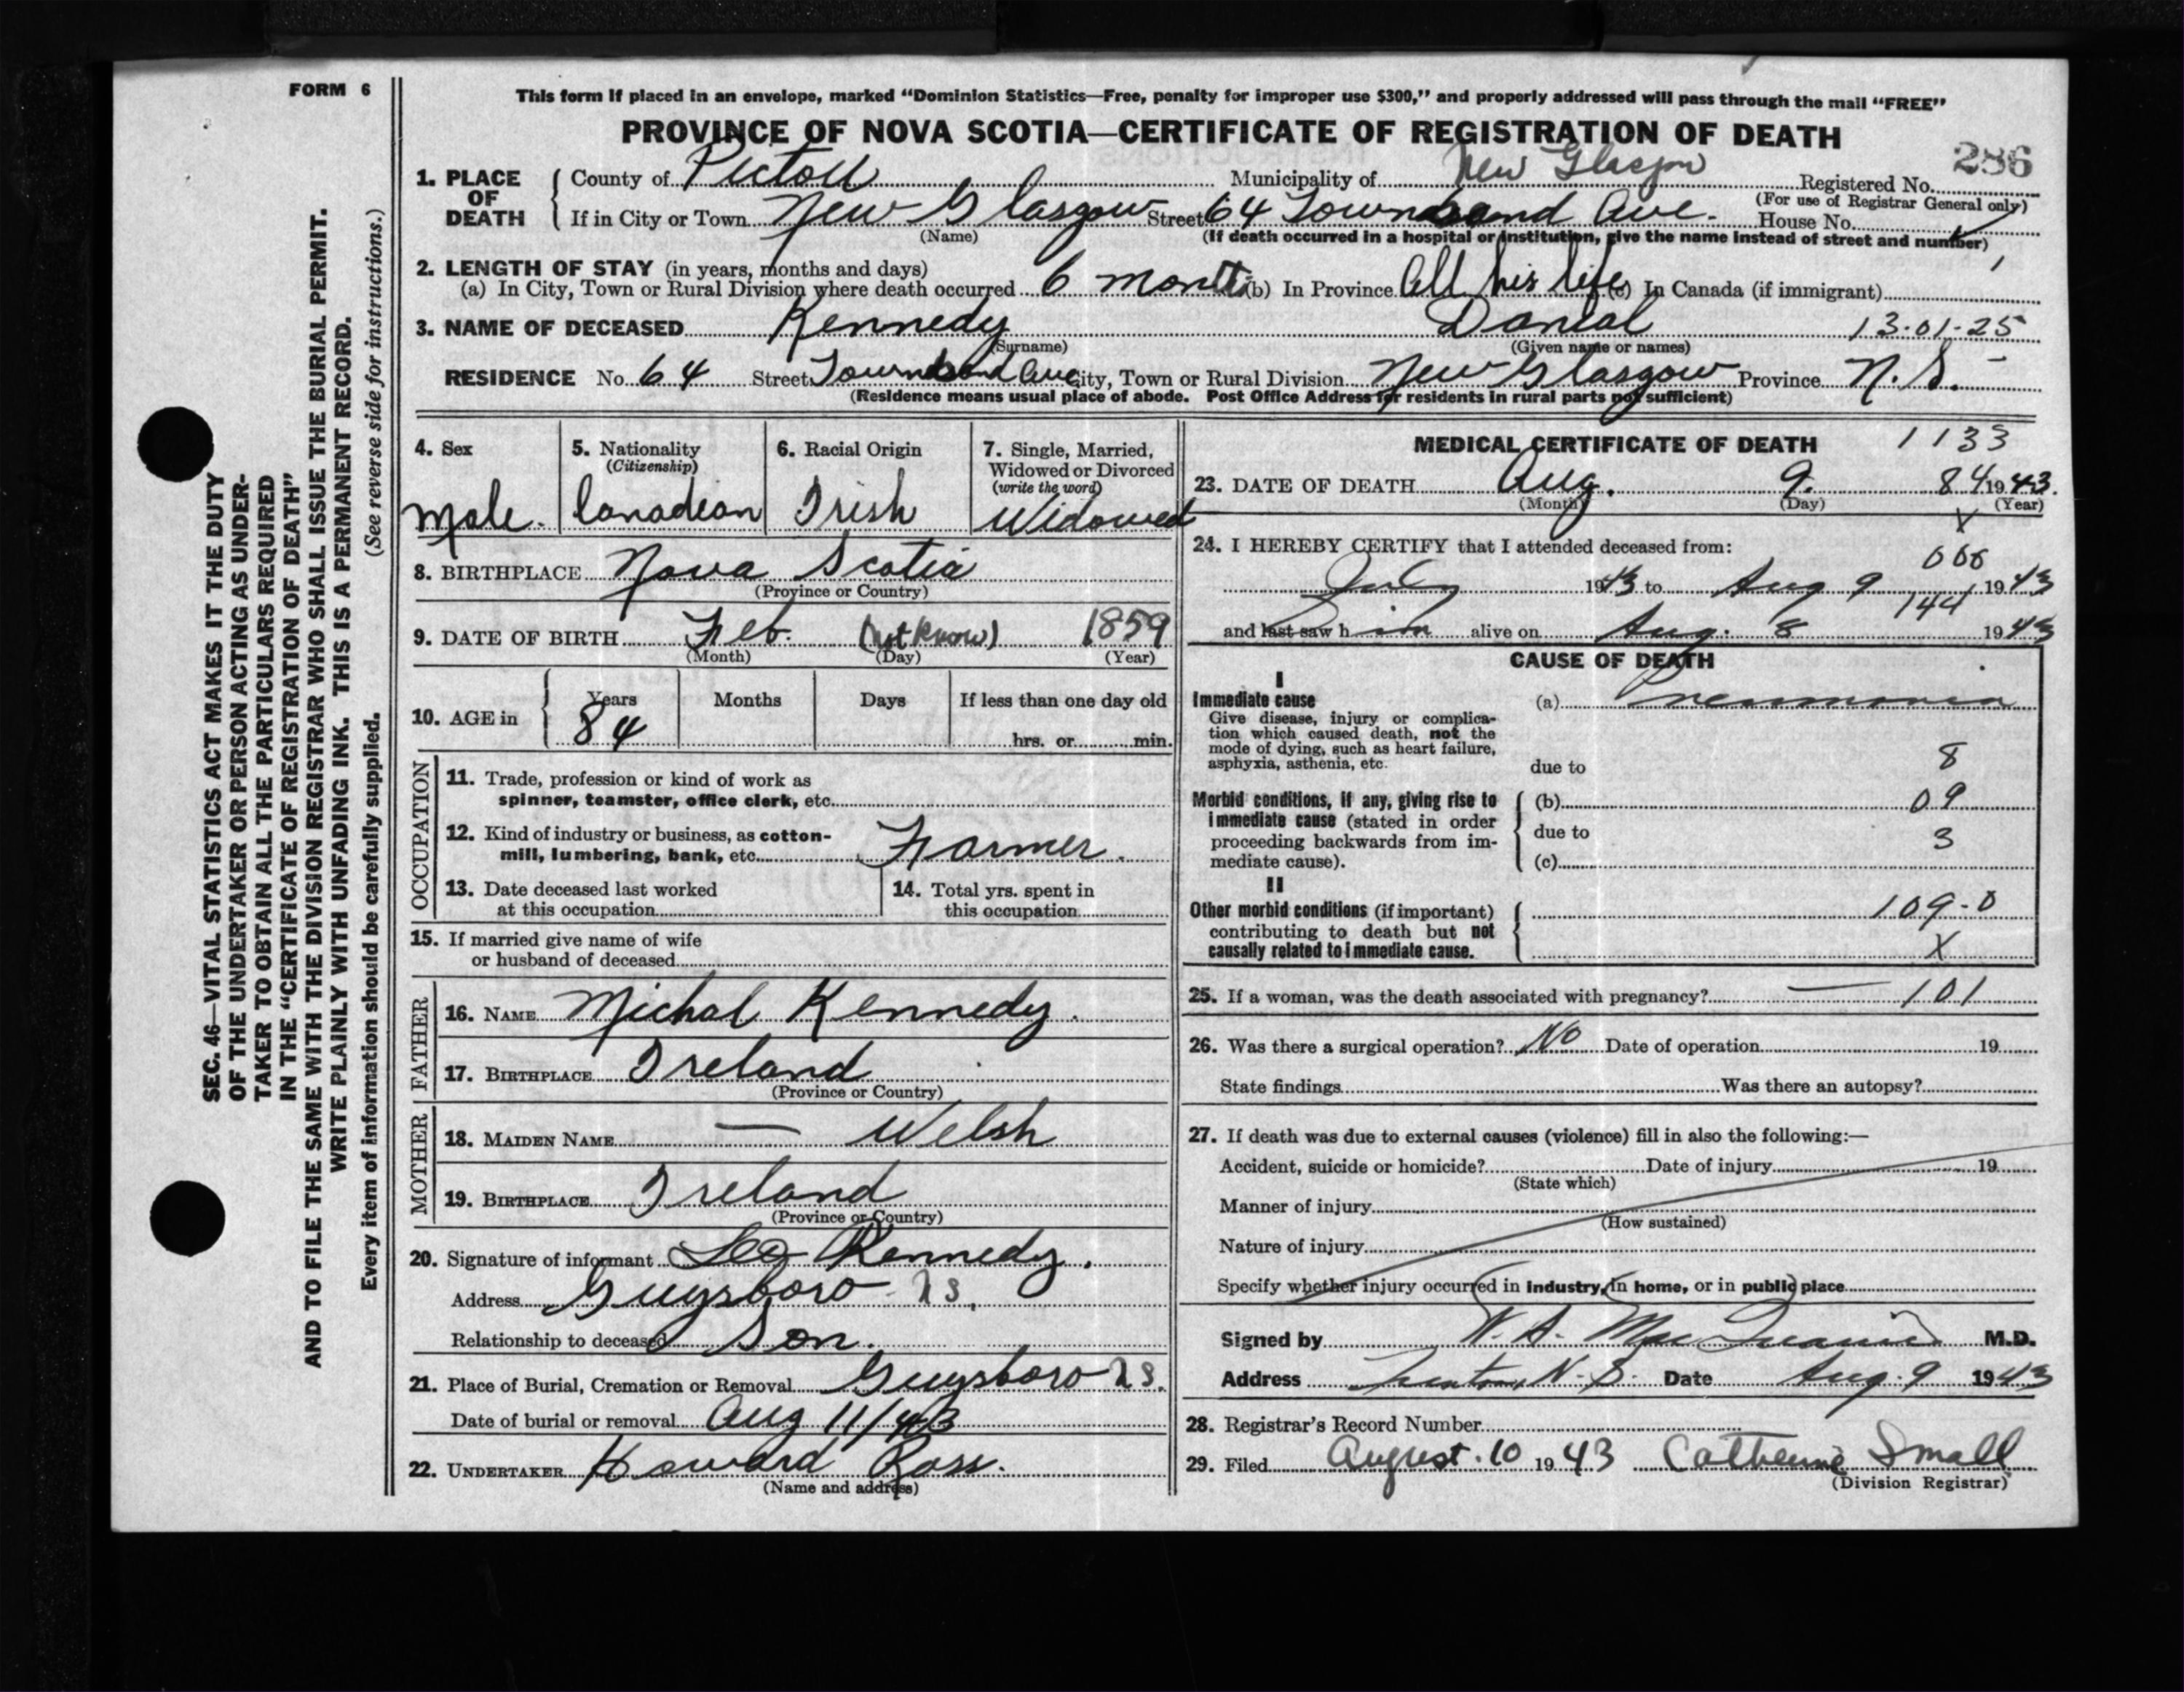 FORM 6
This form if placed in an envelope, marked "Dominion Statistics—Free, penalty for improper use $300," and properly addressed will pass through the mail "FREE"
PROVINCE OF NOVA SCOTIA—CERTIFICATE OF REGISTRATION OF DEATH
286
1. PLACE OF DEATH
County of Pictou Municipality of New Glasgow Registered No.
(For use of Registrar General only)
If in City or Town New Glasgow Street 64 Townsend Ave. House No.
(Name) (If death occurred in a hospital or institution, give the name instead of street and number)
2. LENGTH OF STAY (in years, months and days)
(a) In City, Town or Rural Division where death occurred 6 month (b) In Province All his life (c) In Canada (if immigrant)
3. NAME OF DECEASED Kennedy Danial 13-01-25
(Surname) (Given name or names)
RESIDENCE No. 64 Street Townsend Ave City, Town or Rural Division New Glasgow Province N.S.
(Residence means usual place of abode. Post Office Address for residents in rural parts not sufficient)
SEC. 46—VITAL STATISTICS ACT MAKES IT THE DUTY
OF THE UNDERTAKER OR PERSON ACTING AS UNDER-
TAKER TO OBTAIN ALL THE PARTICULARS REQUIRED
IN THE "CERTIFICATE OF REGISTRATION OF DEATH"
AND TO FILE THE SAME WITH THE DIVISION REGISTRAR WHO SHALL ISSUE THE BURIAL PERMIT.
WRITE PLAINLY WITH UNFADING INK. THIS IS A PERMANENT RECORD.
Every item of information should be carefully supplied. (See reverse side for instructions.)
4. Sex
Male.
5. Nationality
(Citizenship)
Canadian
6. Racial Origin
Irish
7. Single, Married,
Widowed or Divorced
(write the word)
Widowed
8. BIRTHPLACE Nova Scotia
(Province or Country)
9. DATE OF BIRTH Feb. (not know) 1859
(Month) (Day) (Year)
10. AGE in
Years Months Days If less than one day old
84 hrs. or min.
OCCUPATION
11. Trade, profession or kind of work as
spinner, teamster, office clerk, etc.
12. Kind of industry or business, as cotton-
mill, lumbering, bank, etc. Farmer.
13. Date deceased last worked
at this occupation
14. Total yrs. spent in
this occupation
15. If married give name of wife
or husband of deceased
FATHER
16. NAME Michal Kennedy.
17. BIRTHPLACE Ireland
(Province or Country)
MOTHER
18. MAIDEN NAME — Welsh
19. BIRTHPLACE Ireland
(Province or Country)
20. Signature of informant Leo Kennedy.
Address Guysboro NS.
Relationship to deceased Son.
21. Place of Burial, Cremation or Removal Guysboro NS.
Date of burial or removal Aug 11/43
22. UNDERTAKER Howard Ross.
(Name and address)
MEDICAL CERTIFICATE OF DEATH 1133
23. DATE OF DEATH Aug. 9. 84 1943.
(Month) (Day) (Year)
X
24. I HEREBY CERTIFY that I attended deceased from:
066
July 1943 to Aug 9 1943
144
and last saw him alive on Aug. 8 1943
CAUSE OF DEATH
I
Immediate cause (a) Pneumonia
Give disease, injury or complica-
tion which caused death, not the
mode of dying, such as heart failure,
asphyxia, asthenia, etc.
due to 8
Morbid conditions, if any, giving rise to
immediate cause (stated in order
proceeding backwards from im-
mediate cause).
(b) 09
due to 3
(c)
II
Other morbid conditions (if important)
contributing to death but not
causally related to immediate cause.
109-0
X
25. If a woman, was the death associated with pregnancy? — 101
26. Was there a surgical operation? No Date of operation 19
State findings Was there an autopsy?
27. If death was due to external causes (violence) fill in also the following:—
Accident, suicide or homicide? Date of injury 19
(State which)
Manner of injury
(How sustained)
Nature of injury
Specify whether injury occurred in industry, in home, or in public place
Signed by M.D.
Address Trenton, N.S. Date Aug. 9 1943
28. Registrar's Record Number
29. Filed August. 10 1943 Catherine Small
(Division Registrar)